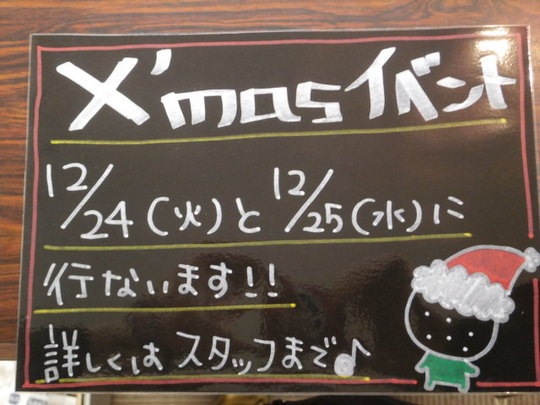 X'masイベント
12/24(火)と12/25(水)に
行ないます!!
詳しくはスタッフまで♪